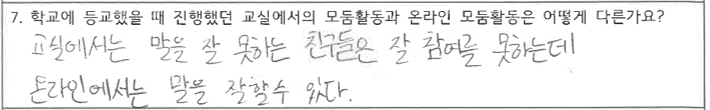 7. 학교에 등교했을 때 진행했던 교실에서의 모둠활동과 온라인 모둠활동은 어떻게 다른가요?
교실에서는 말을 잘 못하는 친구들은 잘 참여를 못하는데
온라인에서는 말을 잘할수 있다.